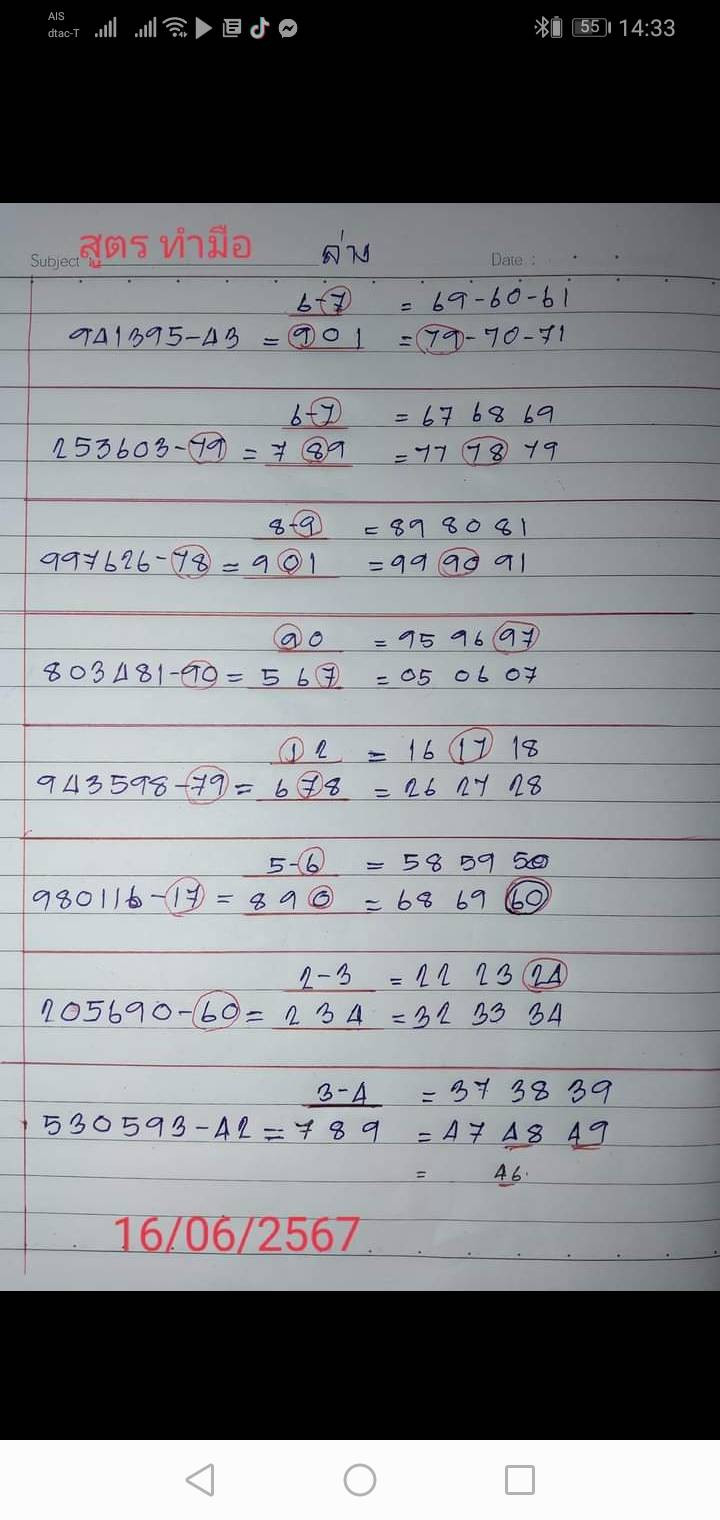 AIS
dtac-T 55 14:33
Subject สูตร ทำมือ ล่าง Date :
6-7 = 69-60-61
941395-43 = 901 = 79-70-71
6-7 = 67 68 69
253603-79 = 789 = 77 78 79
8-9 = 89 80 81
997626-78 = 901 = 99 90 91
90 = 95 96 97
803481-90 = 567 = 05 06 07
12 = 16 17 18
943598-79 = 678 = 26 27 28
5-6 = 58 59 50
980116-17 = 890 = 68 69 60
2-3 = 22 23 24
205690-60 = 234 = 32 33 34
3-4 = 37 38 39
530593-42 = 789 = 47 48 49
= 46.
16/06/2567